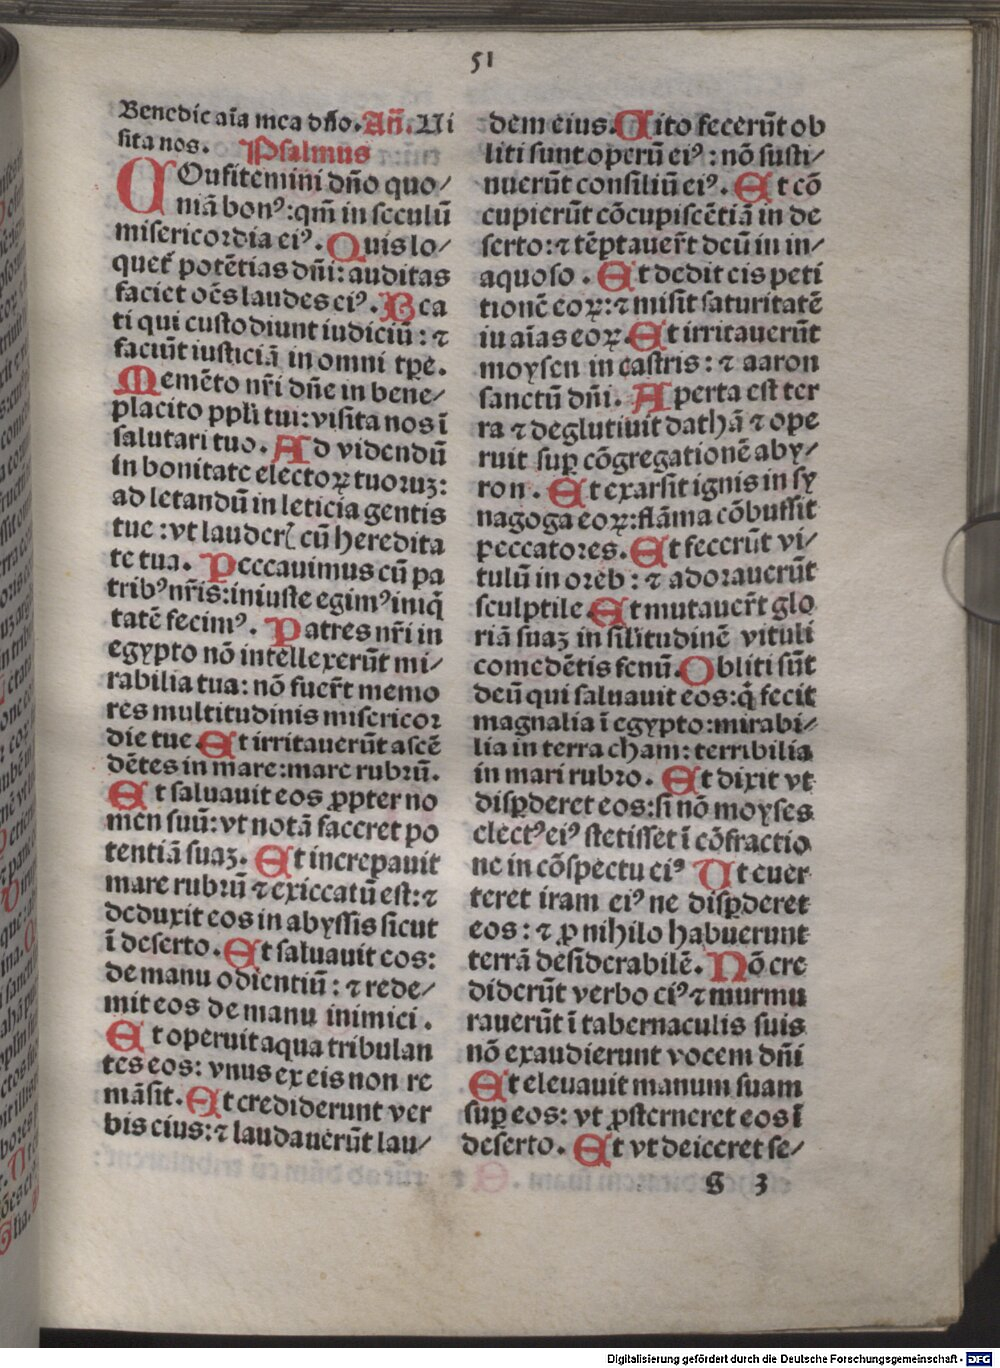 51
Benedic aīa mea dño. Añ. Ui
sita nos. Psalmus
COnfitemini dño quo/
niā bonꝰ: qm̄ in seculū
misericordia eiꝰ. Quis lo/
quet̄ potētias dñi: auditas
faciet oēs laudes eiꝰ. Bea
ti qui custodiunt iudiciū: ⁊
faciūt iusticiā in omni tꝑe.
Memēto nr̄i dñe in bene/
placito ppl̄i tui: visita nos ī
salutari tuo. Ad videndū
in bonitate electoꝝ tuoruꝫ:
ad letandū in leticia gentis
tue: vt lauderꝭ cū heredita
te tua. Peccauimus cū pa
tribꝰ nr̄is: iniuste egimꝰ iniq̄
tatē fecimꝰ. Patres nr̄i in
egypto nō intellexerūt mi/
rabilia tua: nō fuer̄t memo
res multitudinis misericoꝛ
die tue. Et irritauerūt ascē
dētes in mare: mare rubrū.
Et saluauit eos ꝓpter no
men suū: vt notā faceret po
tentiā suaꝫ. Et increpauit
mare rubrū ⁊ exiccatū est: ⁊
deduxit eos in abyssis sicut
ī deserto. Et saluauit eos:
de manu odientiū: ⁊ rede/
mit eos de manu inimici.
Et operuit aqua tribulan
tes eos: vnus ex eis non re
māsit. Et crediderunt ver
bis eius: ⁊ laudauerūt lau/
dem eius. Cito fecerūt ob
liti sunt operū eiꝰ: nō susti/
nuerūt consiliū eiꝰ. Et cō
cupierūt cōcupiscētiā in de
serto: ⁊ tēptauer̄t deū in in/
aquoso. Et dedit eis peti
tionē eoꝝ: ⁊ misit saturitatē
in aīas eoꝝ. Et irritauerūt
moysen in castris: ⁊ aaron
sanctū dñi. Aperta est ter
ra ⁊ deglutiuit dathā ⁊ ope
ruit suꝑ cōgregationē aby/
ron. Et exarsit ignis in sy
nagoga eoꝝ: flāma cōbussit
peccatores. Et fecerūt vi/
tulū in oreb: ⁊ adorauerūt
sculptile. Et mutauer̄t glo
riā suaꝫ in sil̄itudinē vituli
comedētis fenū. Obliti sūt
deū qui saluauit eos: q̄ fecit
magnalia ī egypto: mirabi/
lia in terra cham: terribilia
in mari rubro. Et dixit vt
disꝑderet eos: si nō moyses
electꝰ eiꝰ stetisset ī cōfractio
ne in cōspectu eiꝰ Ut euer
teret iram eiꝰ ne disꝑderet
eos: ⁊ ꝓ nihilo habuerunt
terrā desiderabilē. Nō cre
diderūt verbo eiꝰ ⁊ murmu
rauerūt ī tabernaculis suis
nō exaudierunt vocem dñi
Et eleuauit manum suam
suꝑ eos: vt ꝓsterneret eos ī
deserto. Et vt deiiceret se/
G 3
Digitalisierung gefördert durch die Deutsche Forschungsgemeinschaft - DFG